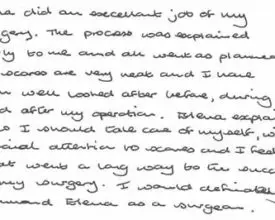 a did an excellent job of my
gery. The process was explained
ly to me and all went as planned
scares are very neat and I have
n well looked after before, during
d after my operation. Elena explain
I should take care of myself, w
ional attention to scares and I feel
at went a long way to the succ
my surgery. I would definatel
mmend Elena as a surgeon.